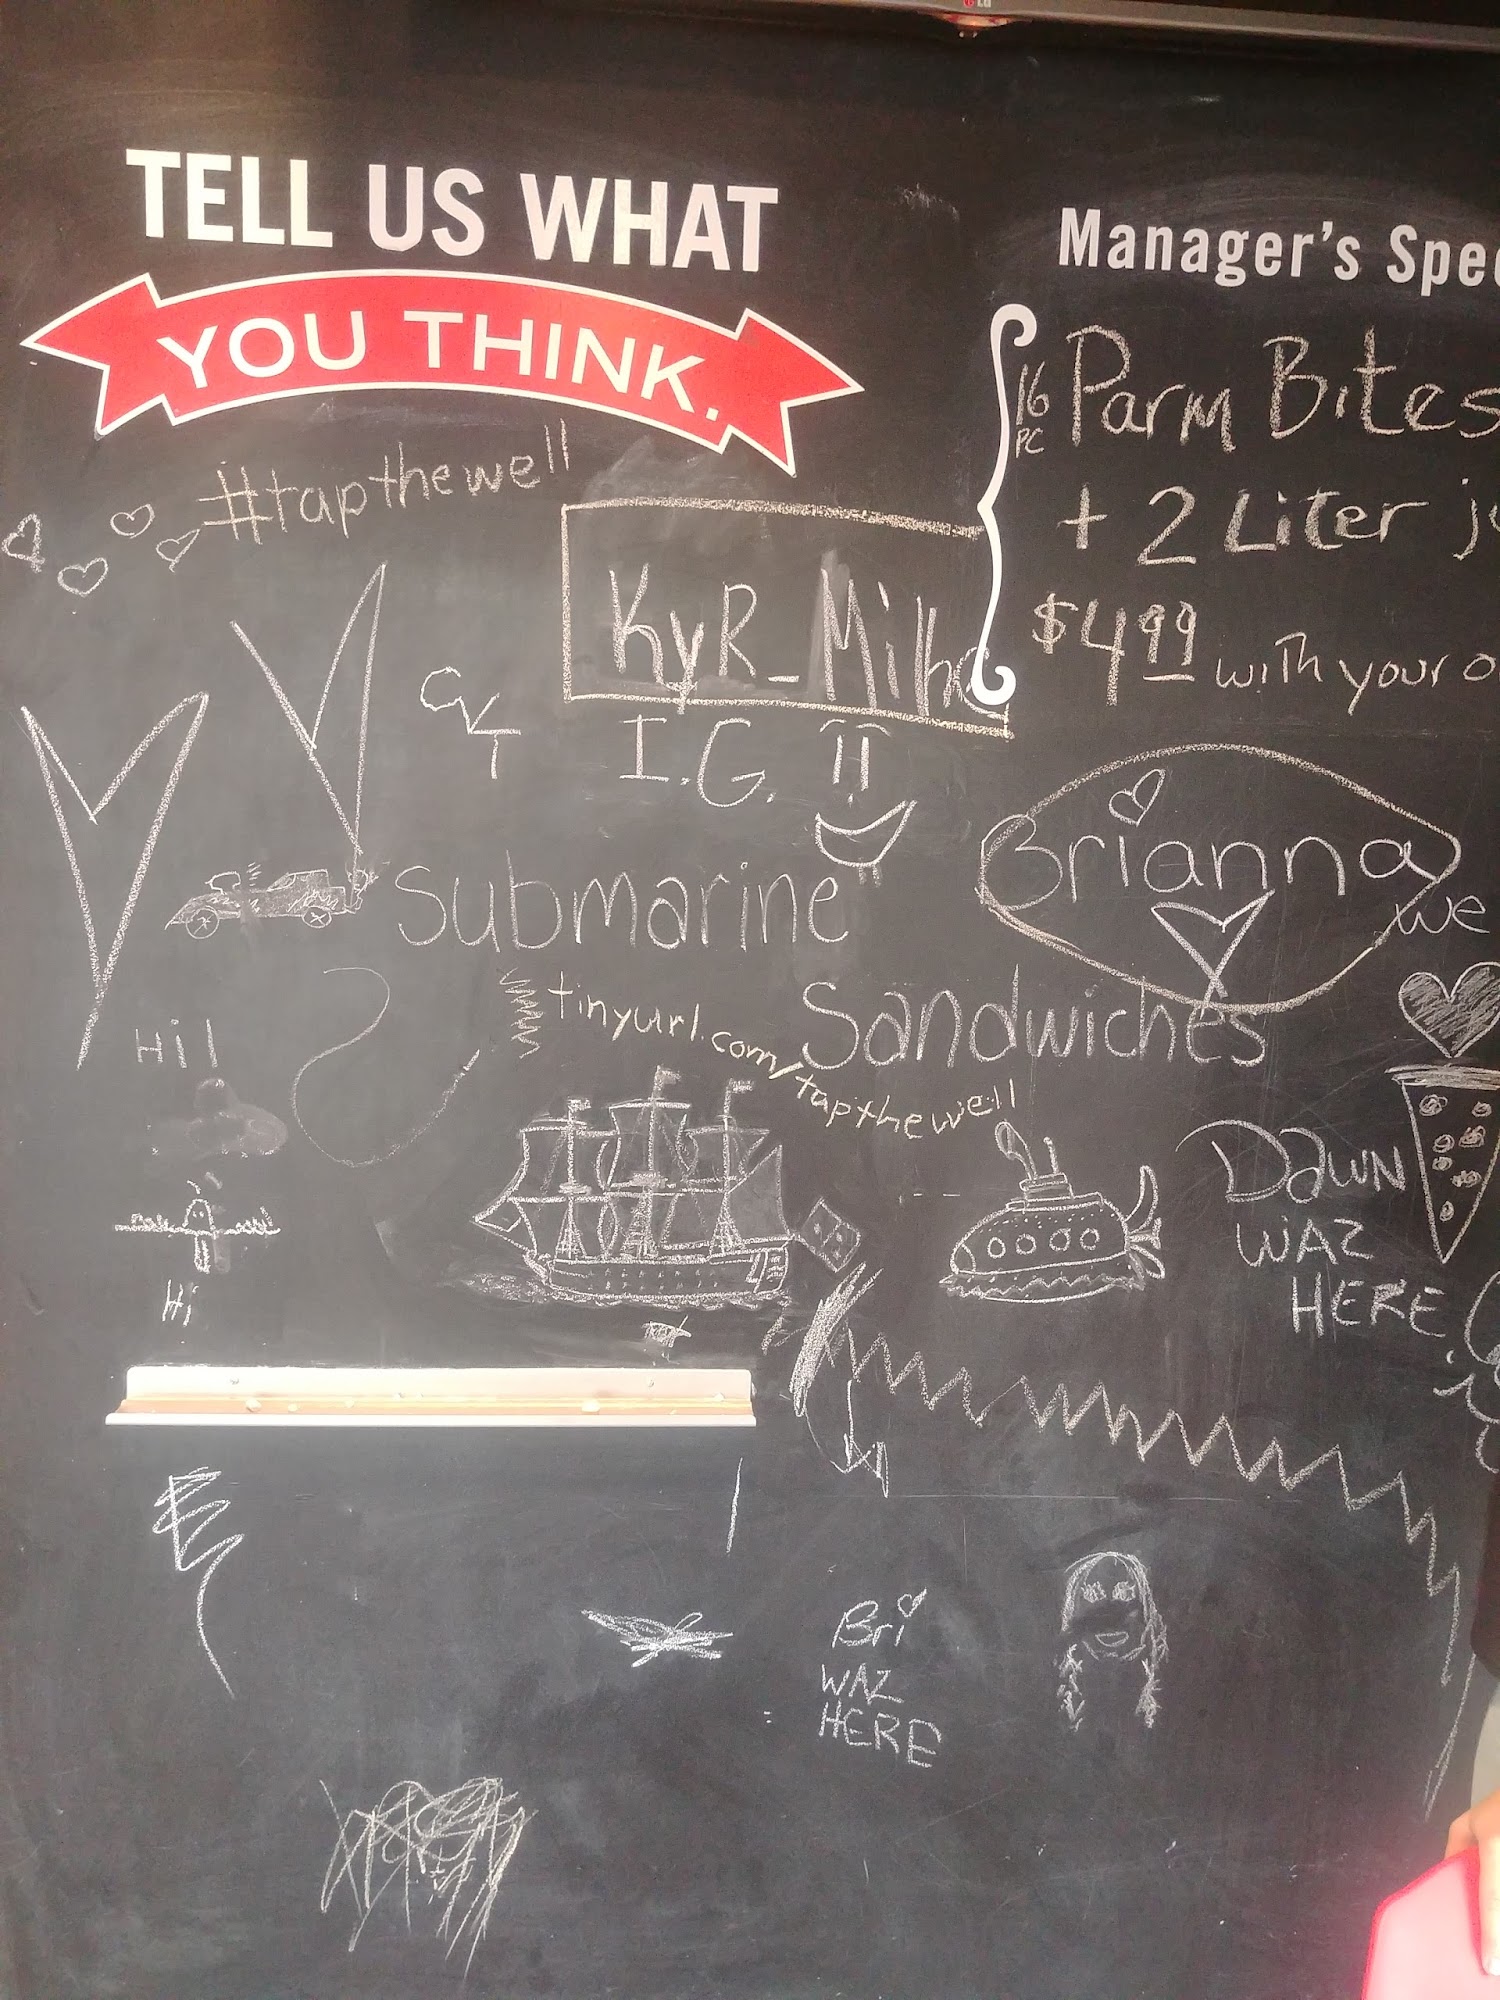 LG
TELL US WHAT
YOU THINK.
#tapthewell
KyR_Milho
I.G.
CVT
Submarine
Sandwiches
tinyurl.com/tapthewell
Hi!
Hi
Manager's Spe
16 PC Parm Bites
+ 2 Liter
$4.99 with your
Brianna
we
DAWN
WAZ
HERE
Bri
WAZ
HERE